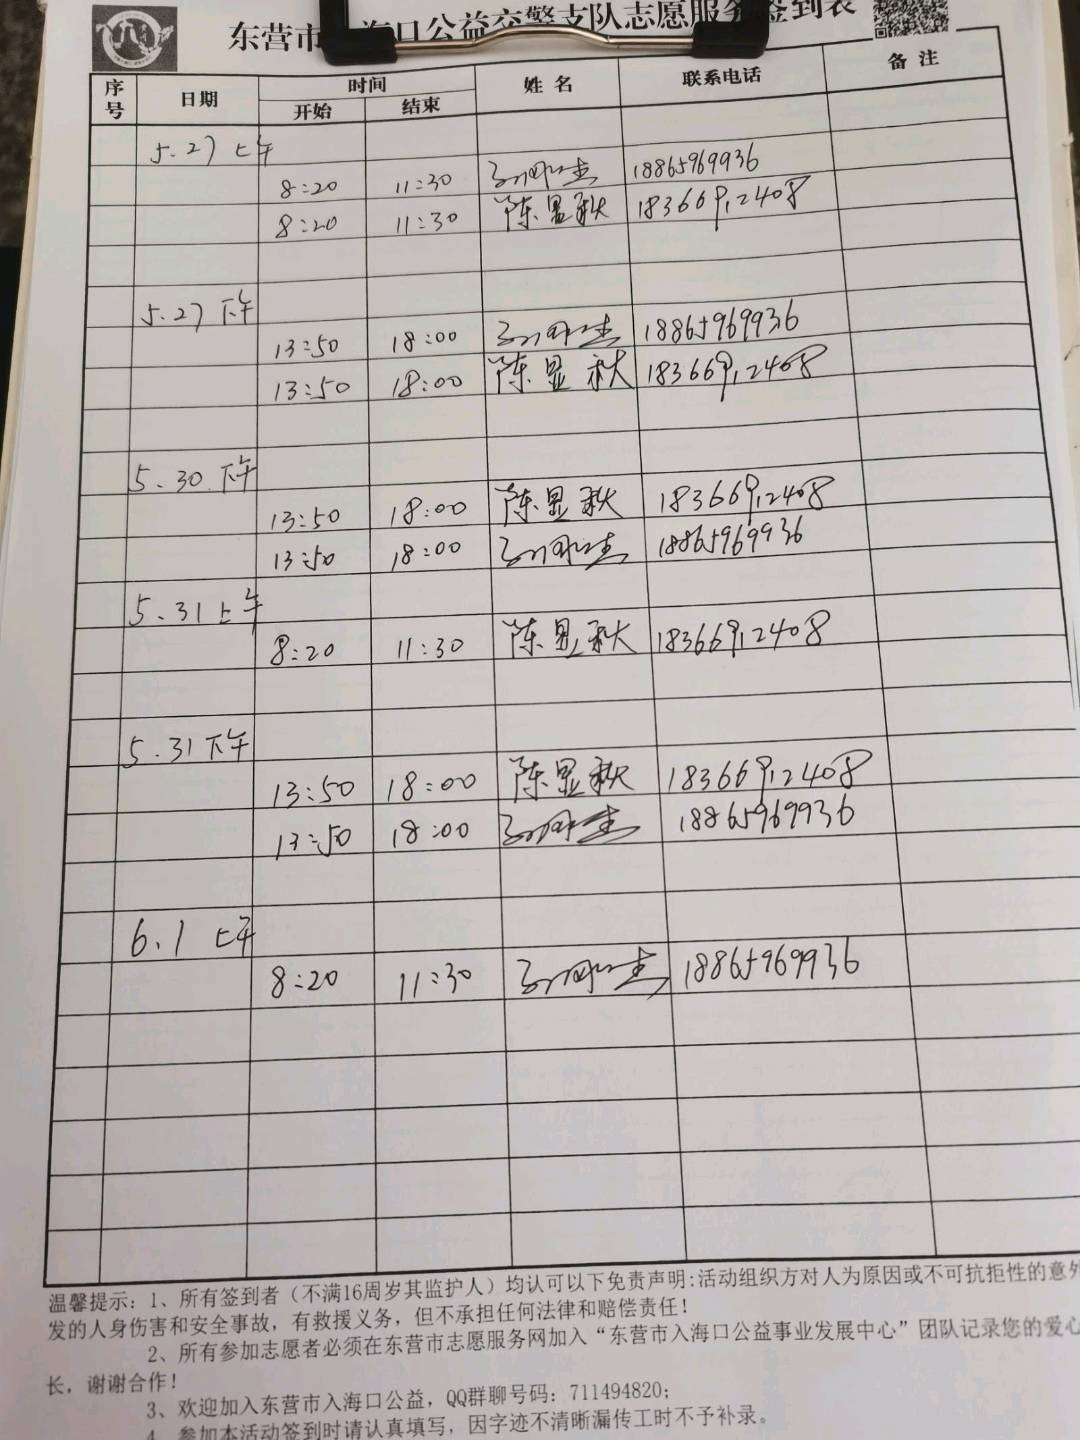 东营市 海口公益交警支队志愿服务签到表
序号 日期 时间 姓 名 联系电话 备 注
开始 结束
5.27 上午
8:20 11:30 18865969936
8:20 11:30 陈显秋 18366912408
5.27 下午
13:50 18:00 18865969936
13:50 18:00 陈显秋 18366912408
5.30 下午
13:50 18:00 陈显秋 18366912408
13:50 18:00 18865969936
5.31 上午
8:20 11:30 陈显秋 18366912408
5.31 下午
13:50 18:00 陈显秋 18366912408
13:50 18:00 18865969936
6.1 上午
8:20 11:30 18865969936
温馨提示：1、所有签到者（不满16周岁其监护人）均认可以下免责声明：活动组织方对人为原因或不可抗拒性的意外
发的人身伤害和安全事故，有救援义务，但不承担任何法律和赔偿责任！
2、所有参加志愿者必须在东营市志愿服务网加入“东营市入海口公益事业发展中心”团队记录您的爱心
长，谢谢合作！
3、欢迎加入东营市入海口公益，QQ群聊号码：711494820；
4、参加本活动签到时请认真填写，因字迹不清晰漏传工时不予补录。